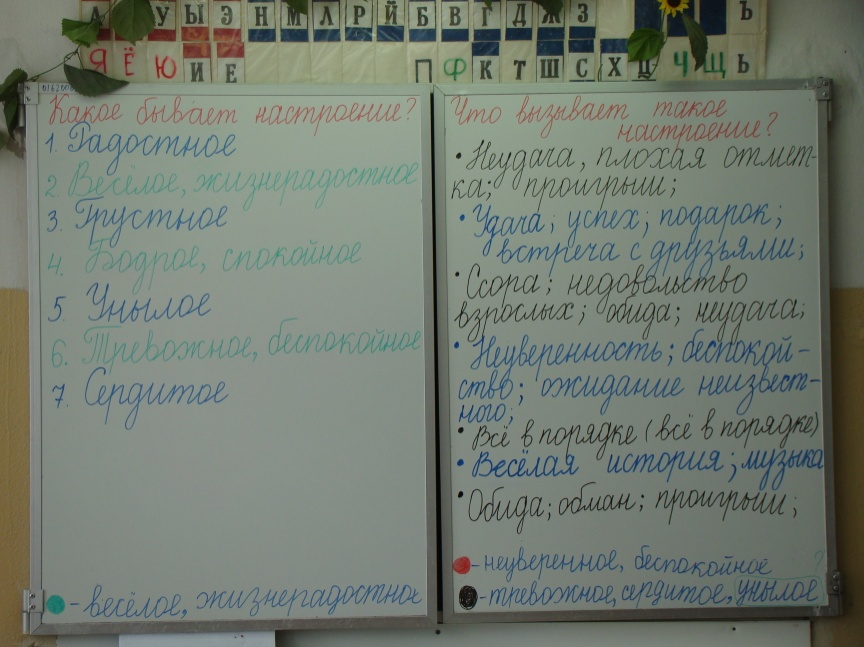 А У Ы Э Н М Л Р Й Б В Г Д Ж З Ь
Я Ё Ю И Е П Ф К Т Ш С Х Ц Ч Щ Ь
Какое бывает настроение?
1. Радостное
2. Весёлое, жизнерадостное
3. Грустное
4. Бодрое, спокойное
5. Унылое
6. Тревожное, беспокойное
7. Сердитое
- весёлое, жизнерадостное
Что вызывает такое
настроение?
• Неудача, плохая отмет-
ка; проигрыш;
• Удача; успех; подарок;
встреча с друзьями;
• Ссора; недовольство
взрослых; обида; неудача;
• Неуверенность; беспокой-
ство; ожидание неизвест-
ного;
• Всё в порядке (всё в порядке)
• Весёлая история; музыка
• Обида; обман; проигрыш;
- неуверенное, беспокойное ?
- тревожное, сердитое, унылое